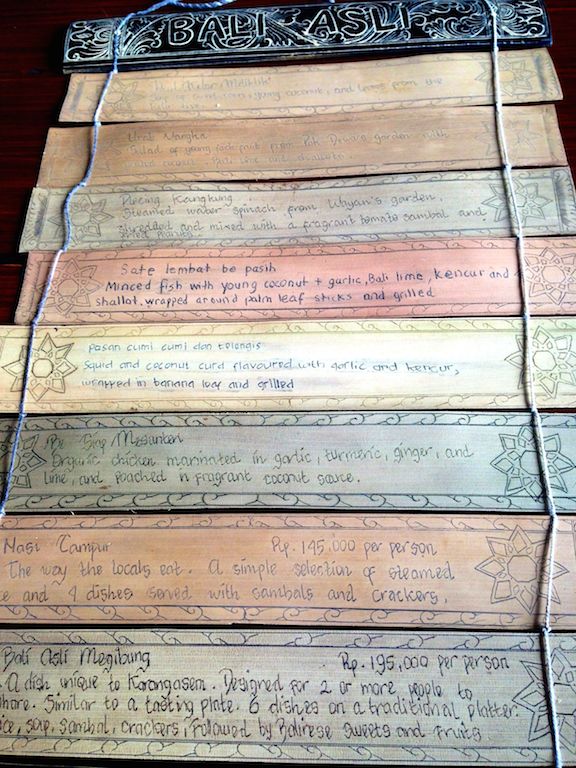 BALI ASLI
corn, young coconut, and leaves from the
Urab Nangka
Salad of young jackfruit from Pak Dewa's garden with
coconut, Bali lime and shallots.
Plecing Kangkung
Steamed water spinach from Wayan's garden,
shredded and mixed with a fragrant tomato sambal and
fried peanuts
Sate lembat be pasih
Minced fish with young coconut + garlic, Bali lime, kencur and
shallot, wrapped around palm leaf sticks and grilled
Pasan cumi cumi dan telengis
Squid and coconut curd flavoured with garlic and kencur,
wrapped in banana leaf and grilled
Be Siap Mesanten
Organic chicken marinated in garlic, turmeric, ginger, and
lime, and poached in fragrant coconut sauce.
Nasi Campur Rp. 145.000 per person
The way the locals eat. A simple selection of steamed
ce and 4 dishes served with sambals and crackers.
Bali Asli Megibung Rp. 195,000 per person
A dish unique to Karangasem. Designed for 2 or more people to
share. Similar to a tasting plate. 6 dishes on a traditional platter.
ice, soup, sambal, crackers, followed by Balinese sweets and fruits